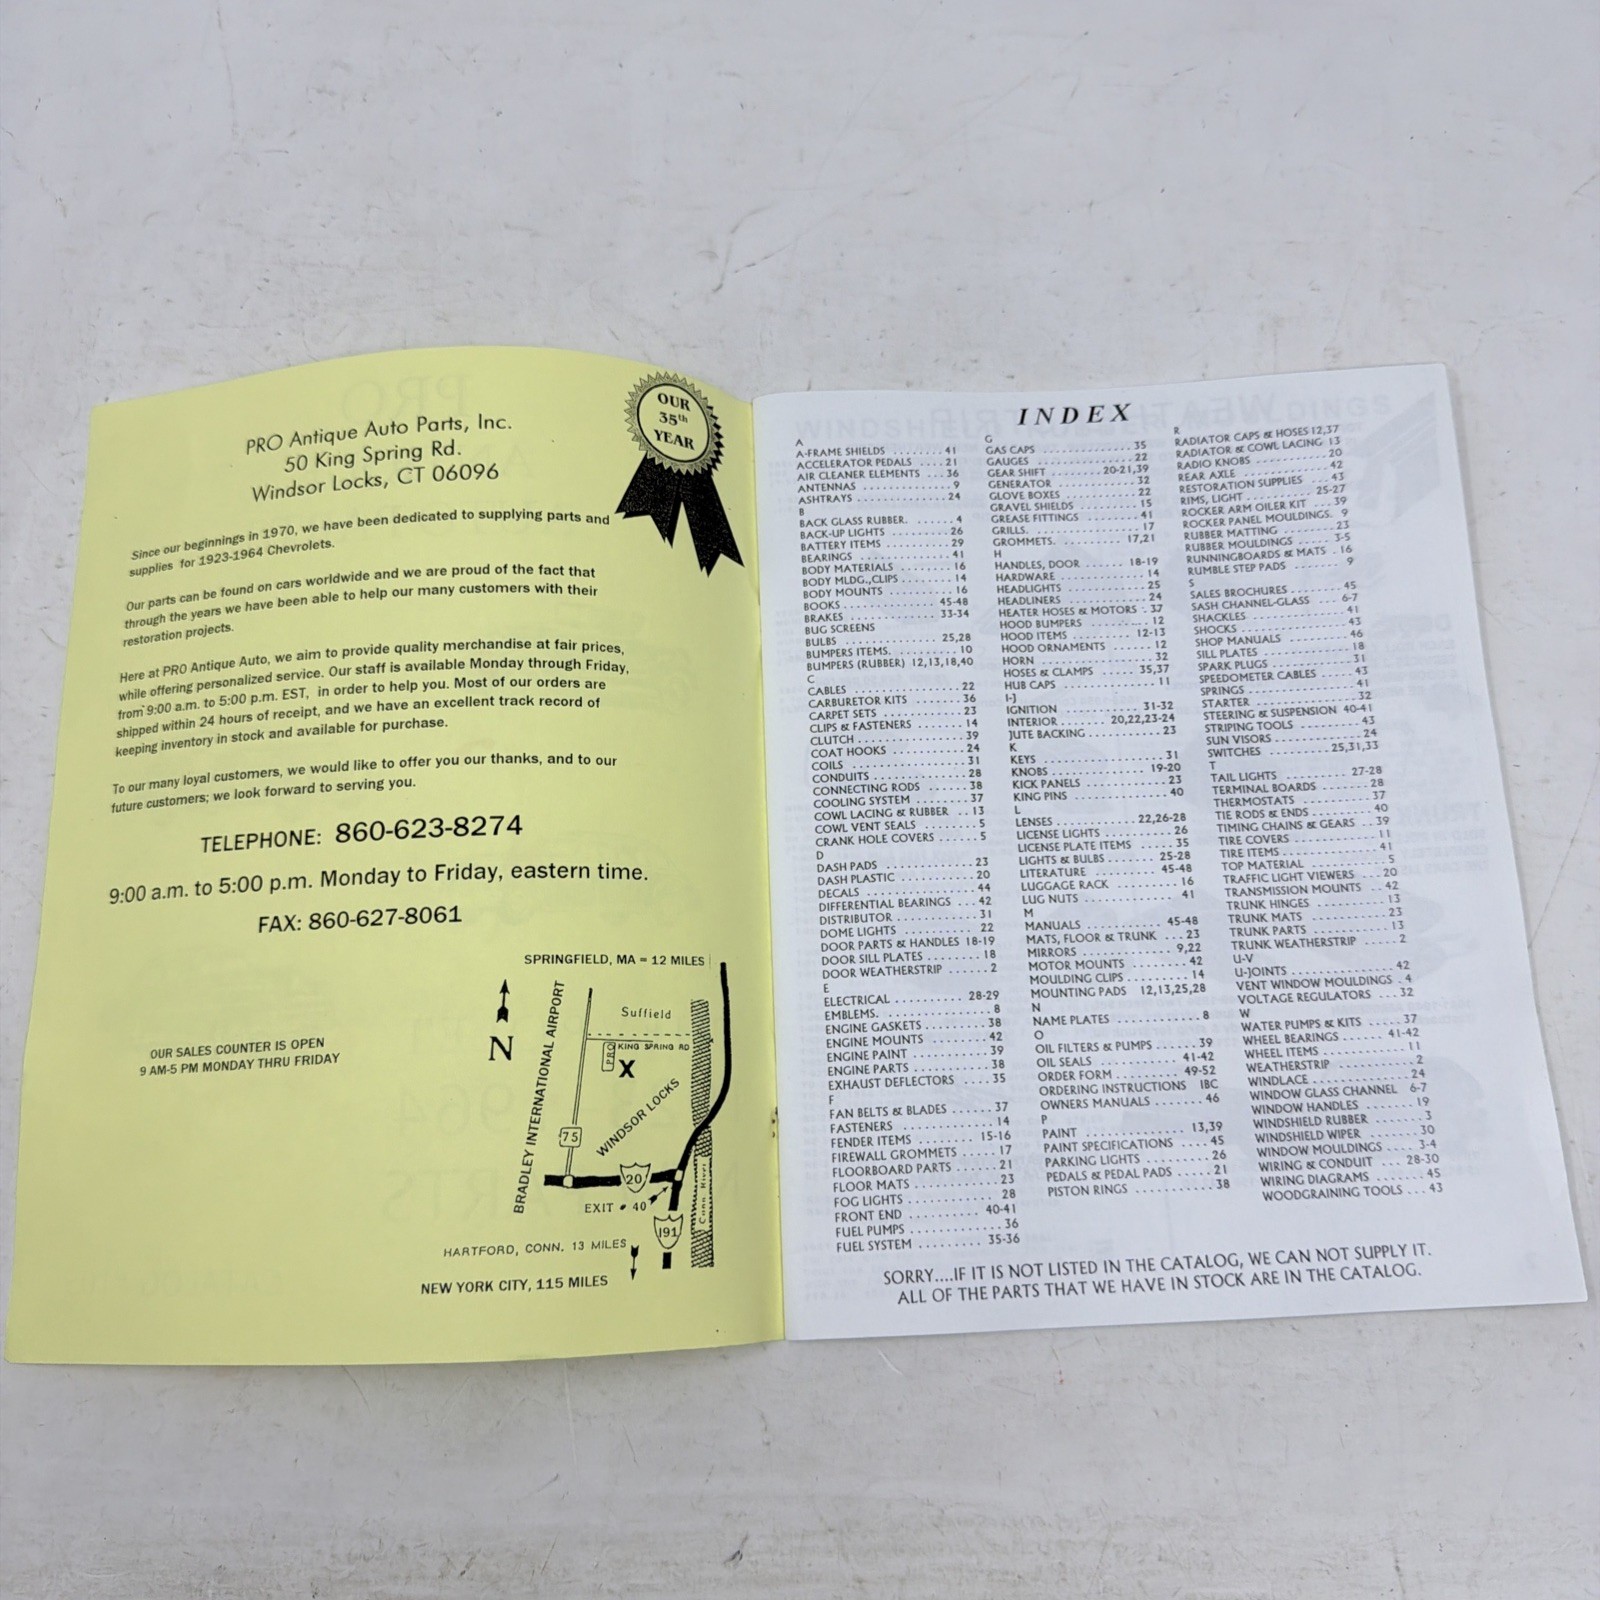 PRO Antique Auto Parts, Inc.
50 King Spring Rd.
Windsor Locks, CT 06096
OUR
35th
YEAR
Since our beginnings in 1970, we have been dedicated to supplying parts and
supplies for 1923-1964 Chevrolets.
Our parts can be found on cars worldwide and we are proud of the fact that
through the years we have been able to help our many customers with their
restoration projects.
Here at PRO Antique Auto, we aim to provide quality merchandise at fair prices,
while offering personalized service. Our staff is available Monday through Friday,
from 9:00 a.m. to 5:00 p.m. EST, in order to help you. Most of our orders are
shipped within 24 hours of receipt, and we have an excellent track record of
keeping inventory in stock and available for purchase.
To our many loyal customers, we would like to offer you our thanks, and to our
future customers; we look forward to serving you.
TELEPHONE: 860-623-8274
9:00 a.m. to 5:00 p.m. Monday to Friday, eastern time.
FAX: 860-627-8061
OUR SALES COUNTER IS OPEN
9 AM-5 PM MONDAY THRU FRIDAY
SPRINGFIELD, MA = 12 MILES
N
BRADLEY INTERNATIONAL AIRPORT
Suffield
PRO
KING SPRING RD
X
WINDSOR LOCKS
75
20
EXIT # 40
191
Conn River
HARTFORD, CONN. 13 MILES
NEW YORK CITY, 115 MILES
INDEX
A
A-FRAME SHIELDS ........ 41
ACCELERATOR PEDALS .... 21
AIR CLEANER ELEMENTS ... 36
ANTENNAS .............. 9
ASHTRAYS .............. 24
B
BACK GLASS RUBBER. ...... 4
BACK-UP LIGHTS ......... 26
BATTERY ITEMS .......... 29
BEARINGS .............. 41
BODY MATERIALS ......... 16
BODY MLDG.,CLIPS ........ 14
BODY MOUNTS .......... 16
BOOKS .............. 45-48
BRAKES .............. 33-34
BUG SCREENS
BULBS ............... 25,28
BUMPERS ITEMS. .......... 10
BUMPERS (RUBBER) 12,13,18,40
C
CABLES ................ 22
CARBURETOR KITS ........ 36
CARPET SETS ............ 23
CLIPS & FASTENERS ........ 14
CLUTCH ................ 39
COAT HOOKS ........... 24
COILS ................. 31
CONDUITS .............. 28
CONNECTING RODS ...... 38
COOLING SYSTEM ........ 37
COWL LACING & RUBBER .. 13
COWL VENT SEALS ........ 5
CRANK HOLE COVERS ...... 5
D
DASH PADS ............. 23
DASH PLASTIC ........... 20
DECALS ................ 44
DIFFERENTIAL BEARINGS ... 42
DISTRIBUTOR ............ 31
DOME LIGHTS ........... 22
DOOR PARTS & HANDLES 18-19
DOOR SILL PLATES ........ 18
DOOR WEATHERSTRIP ...... 2
E
ELECTRICAL .......... 28-29
EMBLEMS. ............... 8
ENGINE GASKETS ......... 38
ENGINE MOUNTS ........ 42
ENGINE PAINT ........... 39
ENGINE PARTS ........... 38
EXHAUST DEFLECTORS .... 35
F
FAN BELTS & BLADES ...... 37
FASTENERS ............. 14
FENDER ITEMS ........ 15-16
FIREWALL GROMMETS ..... 17
FLOORBOARD PARTS ...... 21
FLOOR MATS ............ 23
FOG LIGHTS ............ 28
FRONT END .......... 40-41
FUEL PUMPS ............. 36
FUEL SYSTEM ......... 35-36
G
GAS CAPS .............. 35
GAUGES ............... 22
GEAR SHIFT ........ 20-21,39
GENERATOR ............ 32
GLOVE BOXES ........... 22
GRAVEL SHIELDS ......... 15
GREASE FITTINGS ......... 41
GRILLS. ................ 17
GROMMETS. .......... 17,21
H
HANDLES, DOOR ...... 18-19
HARDWARE ............ 14
HEADLIGHTS ........... 25
HEADLINERS ............ 24
HEATER HOSES & MOTORS . 37
HOOD BUMPERS ......... 12
HOOD ITEMS ......... 12-13
HOOD ORNAMENTS ...... 12
HORN ................. 32
HOSES & CLAMPS ..... 35,37
HUB CAPS .............. 11
I-J
IGNITION ............ 31-32
INTERIOR ....... 20,22,23-24
JUTE BACKING ........... 23
K
KEYS ................. 31
KNOBS .............. 19-20
KICK PANELS ............ 23
KING PINS ............. 40
L
LENSES ............ 22,26-28
LICENSE LIGHTS .......... 26
LICENSE PLATE ITEMS ..... 35
LIGHTS & BULBS ....... 25-28
LITERATURE .......... 45-48
LUGGAGE RACK ......... 16
LUG NUTS ............. 41
M
MANUALS ........... 45-48
MATS, FLOOR & TRUNK ... 23
MIRRORS ............. 9,22
MOTOR MOUNTS ........ 42
MOULDING CLIPS ........ 14
MOUNTING PADS 12,13,25,28
N
NAME PLATES ........... 8
O
OIL FILTERS & PUMPS ..... 39
OIL SEALS ........... 41-42
ORDER FORM ......... 49-52
ORDERING INSTRUCTIONS IBC
OWNERS MANUALS ....... 46
P
PAINT .............. 13,39
PAINT SPECIFICATIONS .... 45
PARKING LIGHTS ......... 26
PEDALS & PEDAL PADS ..... 21
PISTON RINGS ........... 38
R
RADIATOR CAPS & HOSES 12,37
RADIATOR & COWL LACING 13
RADIO KNOBS ........... 20
REAR AXLE ............. 42
RESTORATION SUPPLIES ... 43
RIMS, LIGHT .......... 25-27
ROCKER ARM OILER KIT .... 39
ROCKER PANEL MOULDINGS. 9
RUBBER MATTING ........ 23
RUBBER MOULDINGS ..... 3-5
RUNNINGBOARDS & MATS . 16
RUMBLE STEP PADS ....... 9
S
SALES BROCHURES ........ 45
SASH CHANNEL-GLASS ... 6-7
SHACKLES .............. 41
SHOCKS ............... 43
SHOP MANUALS ......... 46
SILL PLATES ............. 18
SPARK PLUGS ............ 31
SPEEDOMETER CABLES ..... 43
SPRINGS ............... 41
STARTER ............... 32
STEERING & SUSPENSION 40-41
STRIPING TOOLS ......... 43
SUN VISORS ............ 24
SWITCHES ......... 25,31,33
T
TAIL LIGHTS ......... 27-28
TERMINAL BOARDS ....... 28
THERMOSTATS .......... 37
TIE RODS & ENDS ........ 40
TIMING CHAINS & GEARS .. 39
TIRE COVERS ............ 11
TIRE ITEMS ............. 41
TOP MATERIAL .......... 5
TRAFFIC LIGHT VIEWERS ... 20
TRANSMISSION MOUNTS .. 42
TRUNK HINGES .......... 13
TRUNK MATS ........... 23
TRUNK PARTS ........... 13
TRUNK WEATHERSTRIP ..... 2
U-V
U-JOINTS .............. 42
VENT WINDOW MOULDINGS . 4
VOLTAGE REGULATORS ... 32
W
WATER PUMPS & KITS ..... 37
WHEEL BEARINGS ..... 41-42
WHEEL ITEMS ........... 11
WEATHERSTRIP .......... 2
WINDLACE ............. 24
WINDOW GLASS CHANNEL 6-7
WINDOW HANDLES ....... 19
WINDSHIELD RUBBER ...... 3
WINDSHIELD WIPER ....... 30
WINDOW MOULDINGS .... 3-4
WIRING & CONDUIT ... 28-30
WIRING DIAGRAMS ....... 45
WOODGRAINING TOOLS ... 43
SORRY....IF IT IS NOT LISTED IN THE CATALOG, WE CAN NOT SUPPLY IT.
ALL OF THE PARTS THAT WE HAVE IN STOCK ARE IN THE CATALOG.